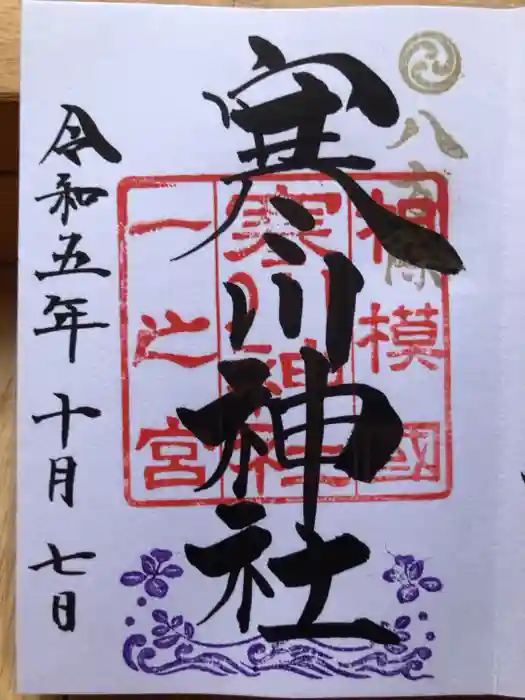 八方除
寒川神社
相模國
寒川神社
一之宮
令和五年十月七日